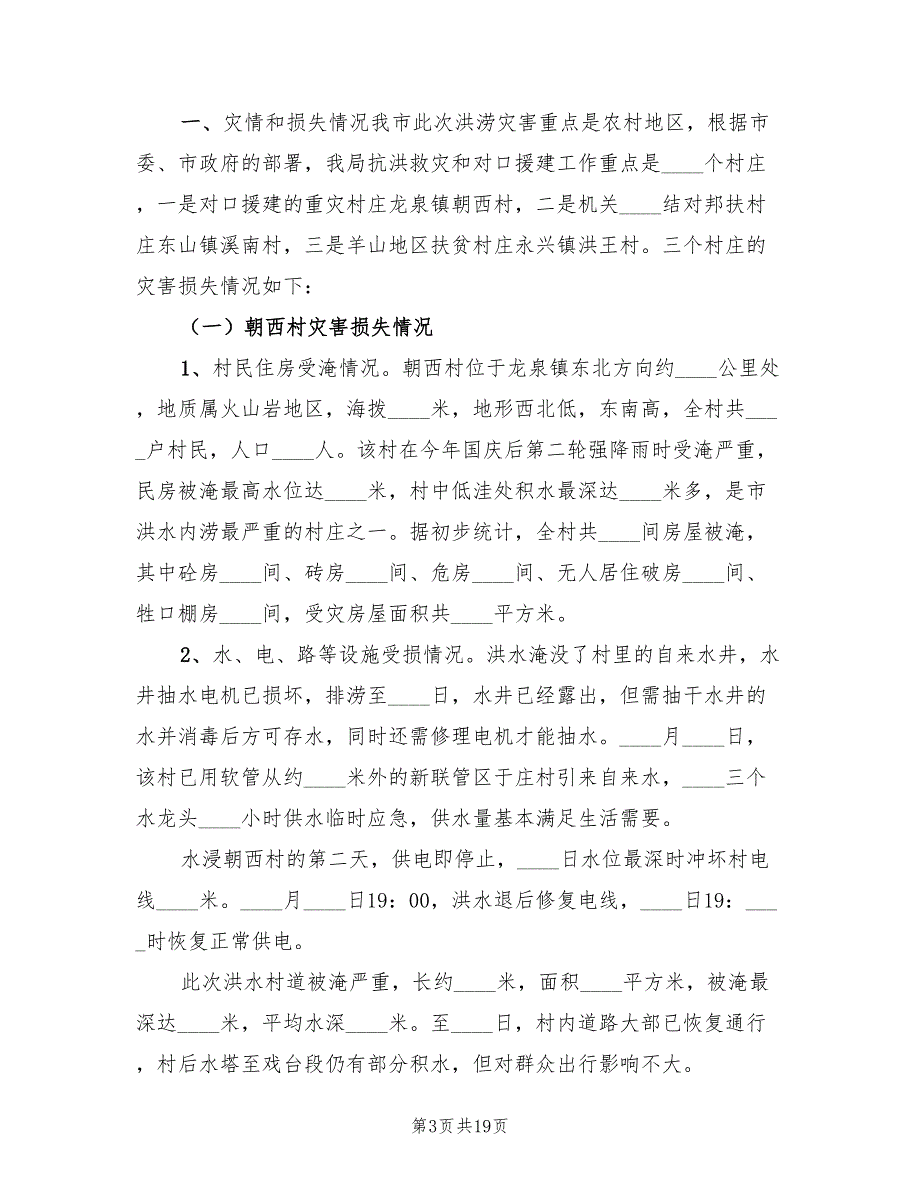 一、灾情和损失情况我市此次洪涝灾害重点是农村地区，根据市
委、市政府的部署，我局抗洪救灾和对口援建工作重点是____个村庄
，一是对口援建的重灾村庄龙泉镇朝西村，二是机关____结对邦扶村
庄东山镇溪南村，三是羊山地区扶贫村庄永兴镇洪王村。三个村庄的
灾害损失情况如下：
（一）朝西村灾害损失情况
1、村民住房受淹情况。朝西村位于龙泉镇东北方向约____公里处
，地质属火山岩地区，海拨____米，地形西北低，东南高，全村共___
_户村民，人口____人。该村在今年国庆后第二轮强降雨时受淹严重，
民房被淹最高水位达____米，村中低洼处积水最深达____米多，是市
洪水内涝最严重的村庄之一。据初步统计，全村共____间房屋被淹，
其中砼房____间、砖房____间、危房____间、无人居住破房____间、
牲口棚房____间，受灾房屋面积共____平方米。
2、水、电、路等设施受损情况。洪水淹没了村里的自来水井，水
井抽水电机已损坏，排涝至____日，水井已经露出，但需抽干水井的
水并消毒后方可存水，同时还需修理电机才能抽水。____月____日，
该村已用软管从约____米外的新联管区于庄村引来自来水，____三个
水龙头____小时供水临时应急，供水量基本满足生活需要。
水浸朝西村的第二天，供电即停止，____日水位最深时冲坏村电
线____米。____月____日19：00，洪水退后修复电线，____日19：___
_时恢复正常供电。
此次洪水村道被淹严重，长约____米，面积____平方米，被淹最
深达____米，平均水深____米。至____日，村内道路大部已恢复通行
，村后水塔至戏台段仍有部分积水，但对群众出行影响不大。
第3页共19页